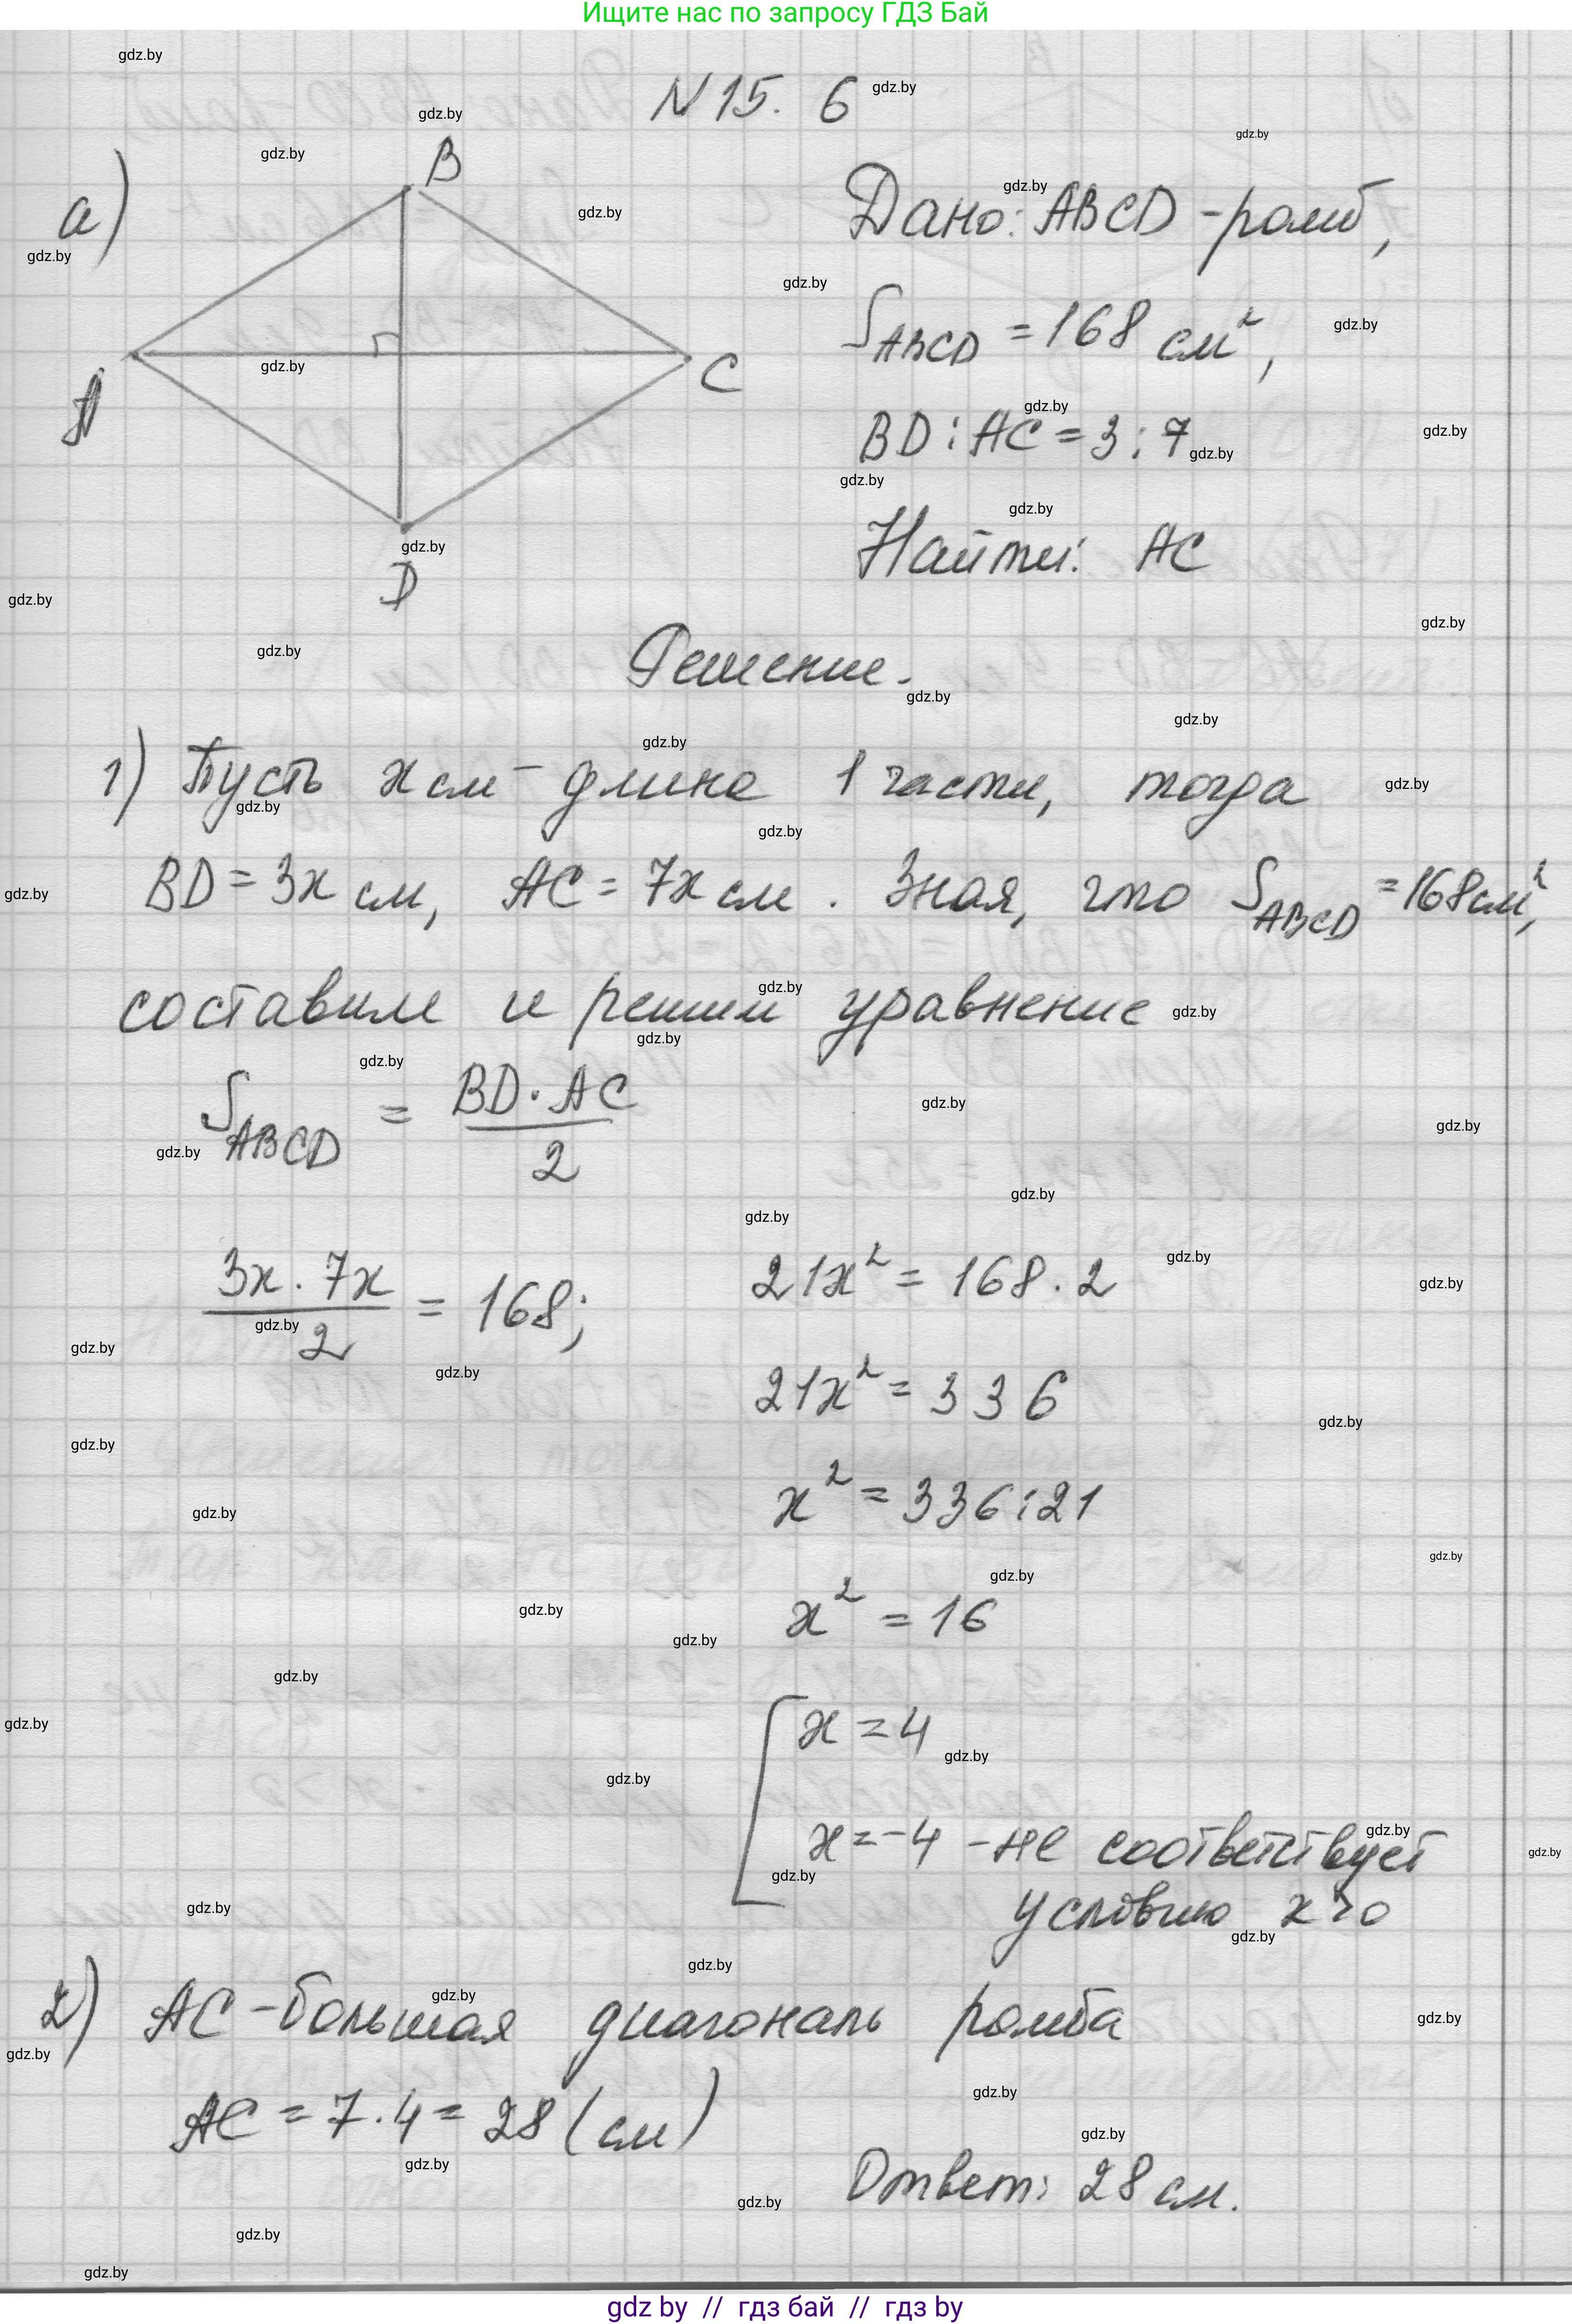 Ищите нас по запросу ГДЗ Бай
N 15. 6
а)
B
A
C
D
Дано: ABCD - ромб,
S ABCD = 168 см²,
BD : AC = 3 : 7
Найти: AC
Решение.
1) Пусть x см - длина 1 части, тогда
BD = 3x см, AC = 7x см. Зная, что S ABCD = 168 см²,
составим и решим уравнение
S ABCD = BD · AC / 2
3x · 7x / 2 = 168;
21x² = 168 · 2
21x² = 336
x² = 336 : 21
x² = 16
x = 4
x = -4 - не соответствует
условию x > 0
2) AC - большая диагональ ромба
AC = 7 · 4 = 28 (см)
Ответ: 28 см.
gdz.by
gdz by // гдз бай // гдз by